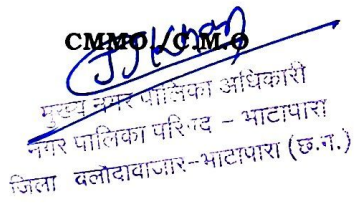 CMMO./C.M.O
मुख्य नगर पालिका अधिकारी
नगर पालिका परिषद - भाटापारा
जिला बलौदाबाजार-भाटापारा (छ.ग.)